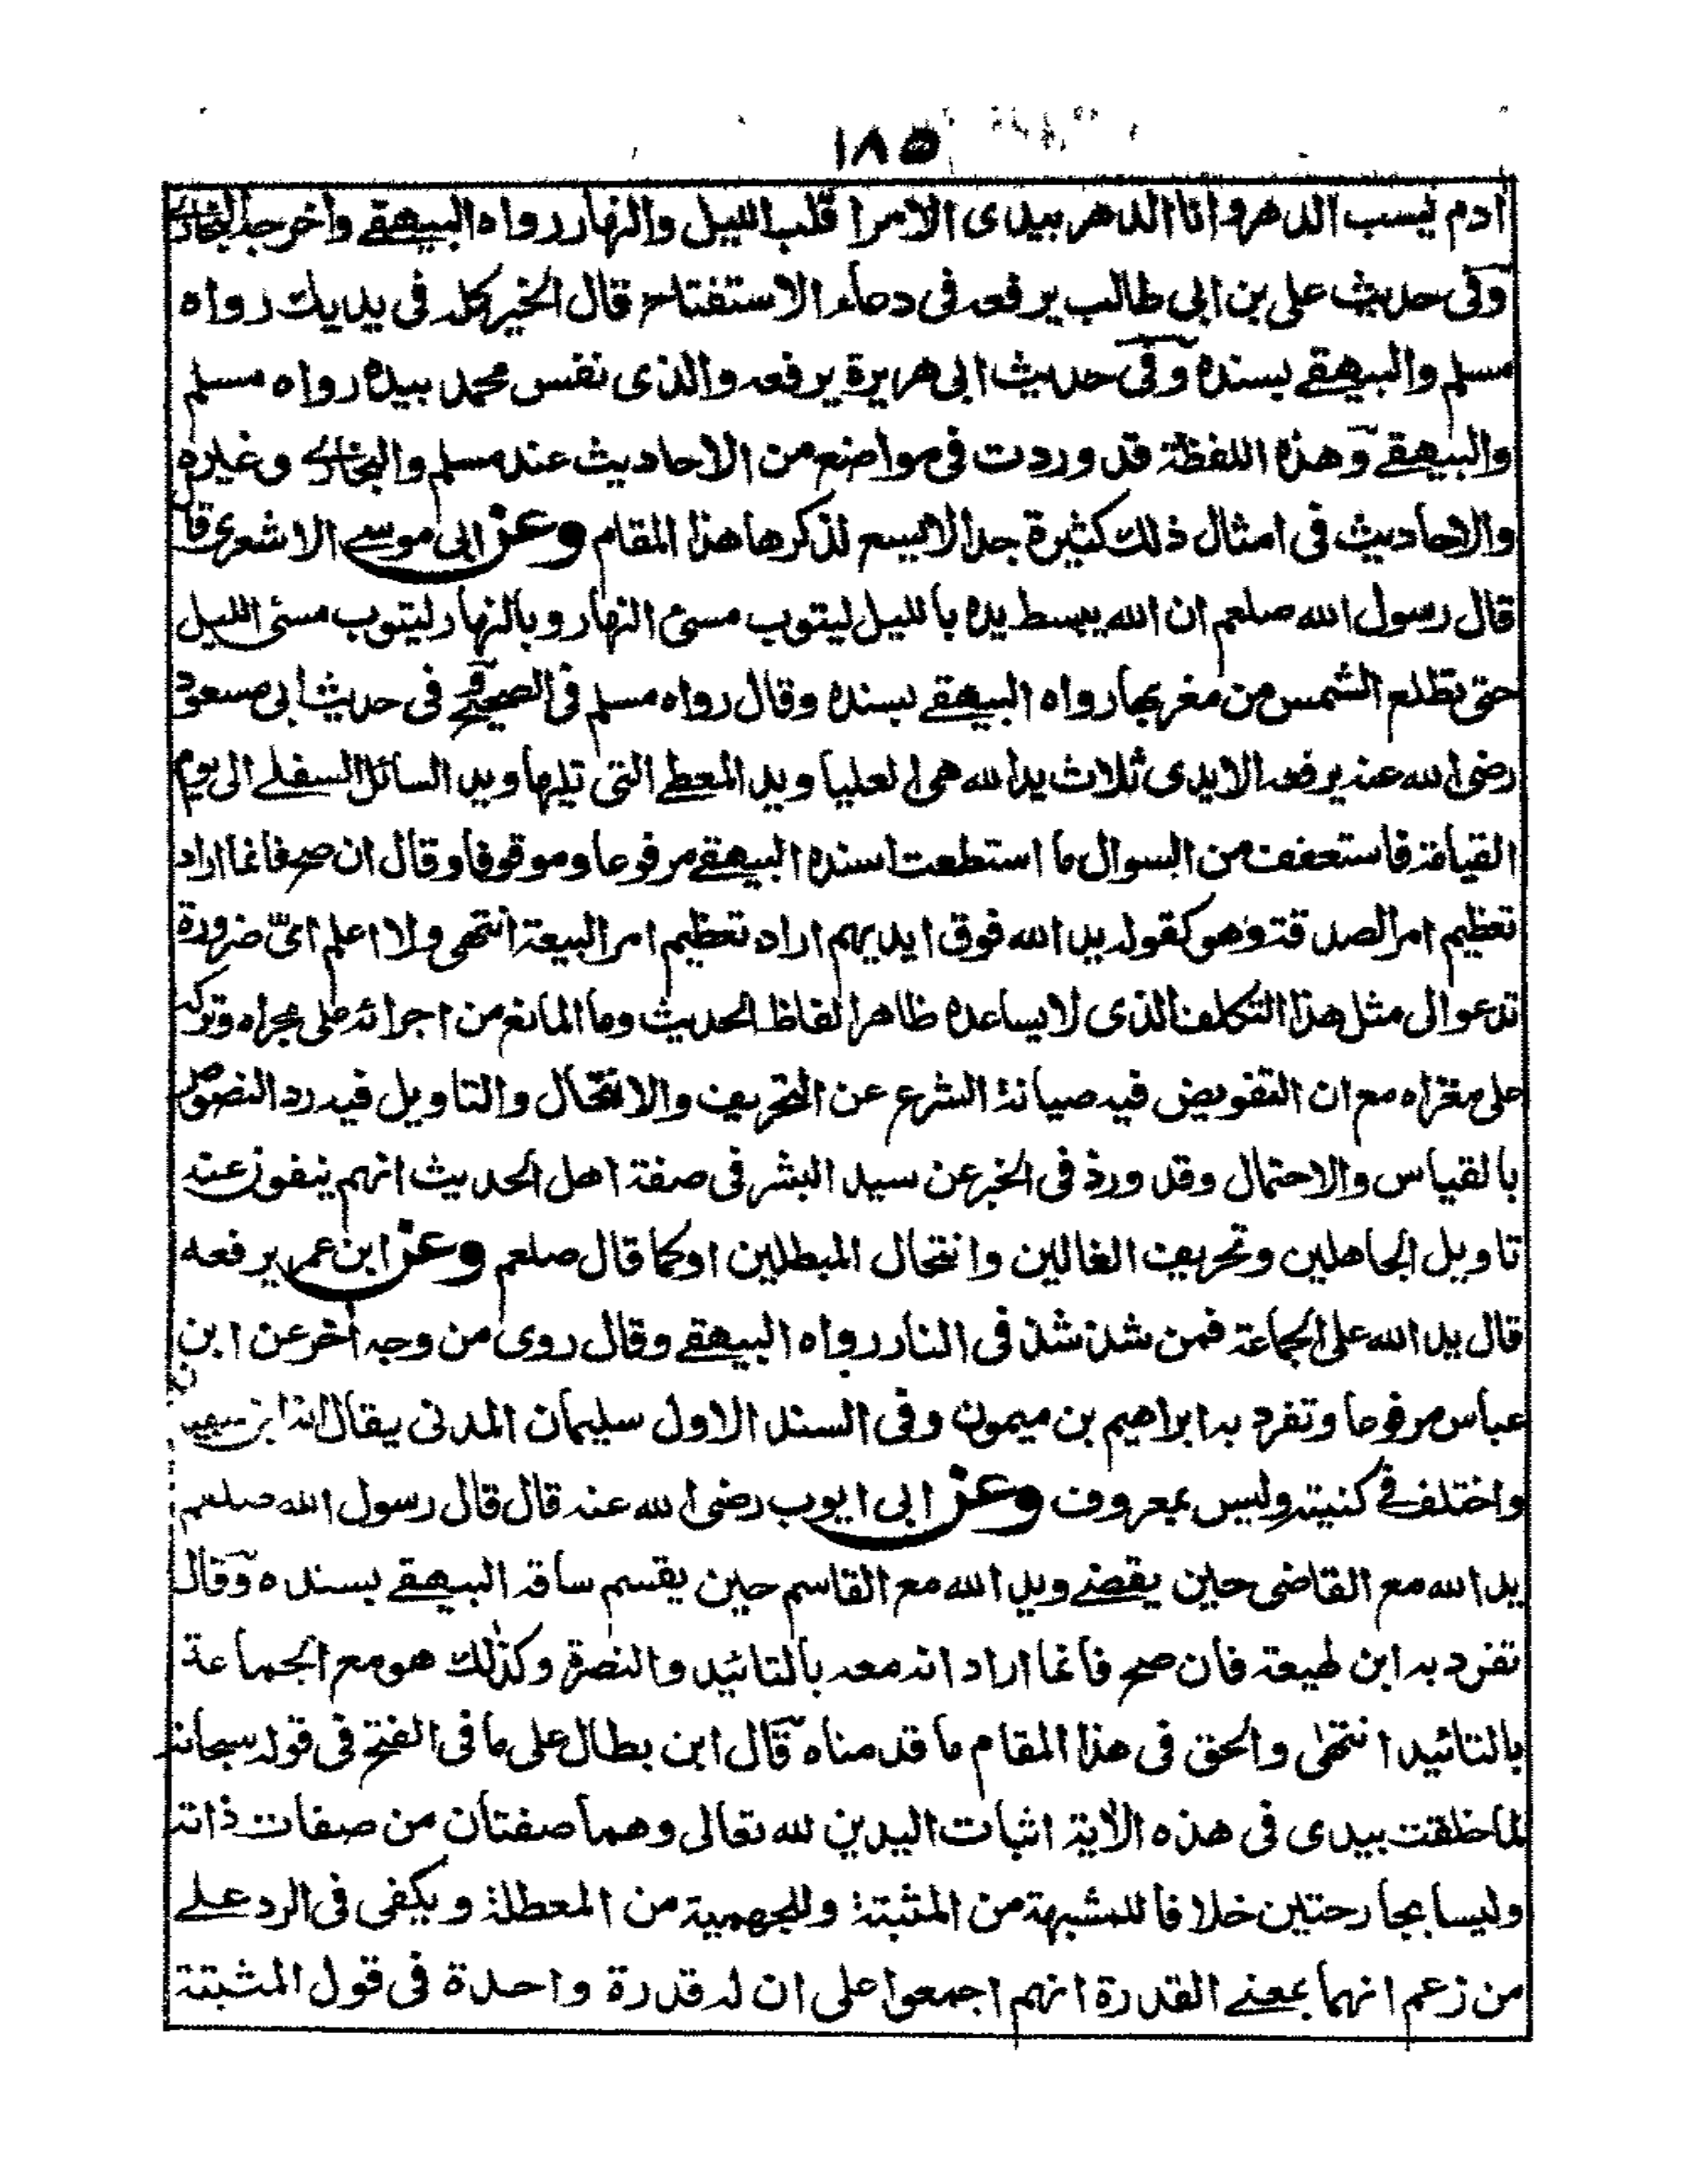 ١٨٥
ادم يسب الدهر وانا الدهر بيدى الامر اقلب الليل والنهار رواه البيهقے واخرجه البخارے
وفى حديث على بن ابى طالب يرفعه فى دعاء الاستفتاح قال الخير كله فى يديك رواه
مسلم والبيهقے بسنده وفى حديث ابى هريرة يرفعه والذى نفس محمد بيده رواه مسلم
والبيهقے وهذه اللفظة قد وردت فى مواضع من الاحاديث عند مسلم والبخارے وغيره
والاحاديث فى امثال ذلك كثيرة جدا لا يسع لذكرها هذا المقام وعن ابى موسے الاشعرى قال
قال رسول الله صلعم ان الله يبسط يده بالليل ليتوب مسئ النهار وبالنهار ليتوب مسئ الليل
حتى تطلع الشمس من مغربها رواه البيهقے بسنده وقال رواه مسلم فى الصحيح وفى حديث ابى مسعود
رضى الله عنه يرفعه الايدى ثلاث يد الله هى العليا ويد المعطے التى تليها ويد السائل السفلے الى يوم
القيامة فاستعفف من السوال ما استطعت اسنده البيهقے مرفوعا وموقوفا وقال ان صح فانما اراد
تعظيم امر الصدقة وهو كقوله يد الله فوق ايديهم اراد تعظيم امر البيعة انتهى ولا اعلم اىّ ضرورة
تدعو الى مثل هذا التكلف الذى لا يساعده ظاهر الفاظ الحديث وما المانع من اجرائه على مجراه وتركه
على مغزاه مع ان التفويض فيه صيانة الشرع عن التحريف والانتحال والتاويل فيه رد النصوص
بالقياس والاحتمال وقد ورد فى الخبر عن سيد البشر فى صفة اهل الحديث انهم ينفون عنه
تاويل الجاهلين وتحريف الغالين وانتحال المبطلين اوكما قال صلعم وعن ابن عمر يرفعه
قال يد الله على الجماعة فمن شذ شذ فى النار رواه البيهقے وقال روى من وجه آخر عن ابن
عباس مرفوعا وتفرد به ابراهيم بن ميمون وفى السند الاول سليمان المدنى يقال انه ابن سفيان
واختلف فے كنيته وليس بمعروف وعن ابى ايوب رضى الله عنه قال قال رسول الله صلعم
يد الله مع القاضى حين يقضے ويد الله مع القاسم حين يقسم ساقه البيهقے بسنده وقال
تفرد به ابن لهيعة فان صح فانما اراد انه معه بالتائيد والنصرة وكذلك هو مع الجماعة
بالتائيد انتهٰى والحق فى هذا المقام ما قدمناه قال ابن بطال على ما فى الفتح فى قوله سبحانه
لما خلقت بيدى فى هذه الآية اثبات اليدين لله تعالى وهما صفتان من صفات ذاته
وليسا بجارحتين خلافا للمشبهة من المثبتة وللجهمية من المعطلة ويكفى فى الرد علے
من زعم انهما بمعنے القدرة انهم اجمعوا على ان له قدرة واحدة فى قول المثبتة